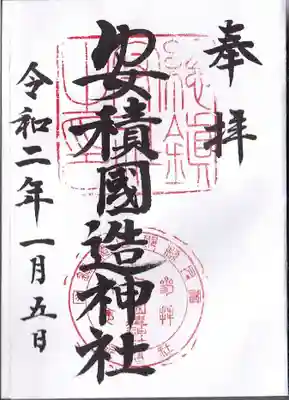 奉拝
安積國造神社
令和二年一月五日